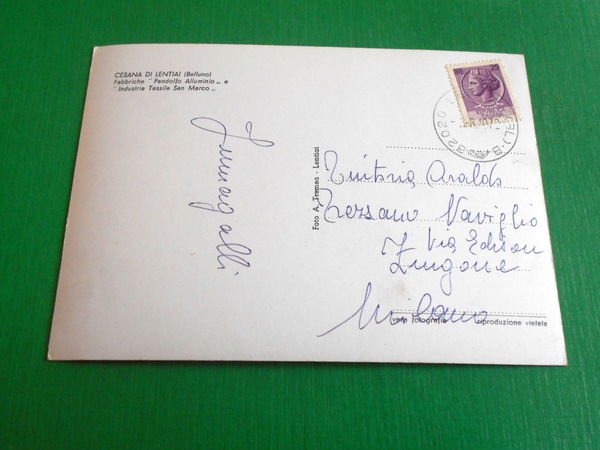 CESANA DI LENTIAI (Belluno)
Fabbriche " Pandolfo Alluminio „ e
" Industria Tessile San Marco „
Foto A. Tremea - Lentiai
25
32020
Araldo
Trezzano Naviglio
Via Edison
Zingone
Milano
vera fotografia
riproduzione vietata